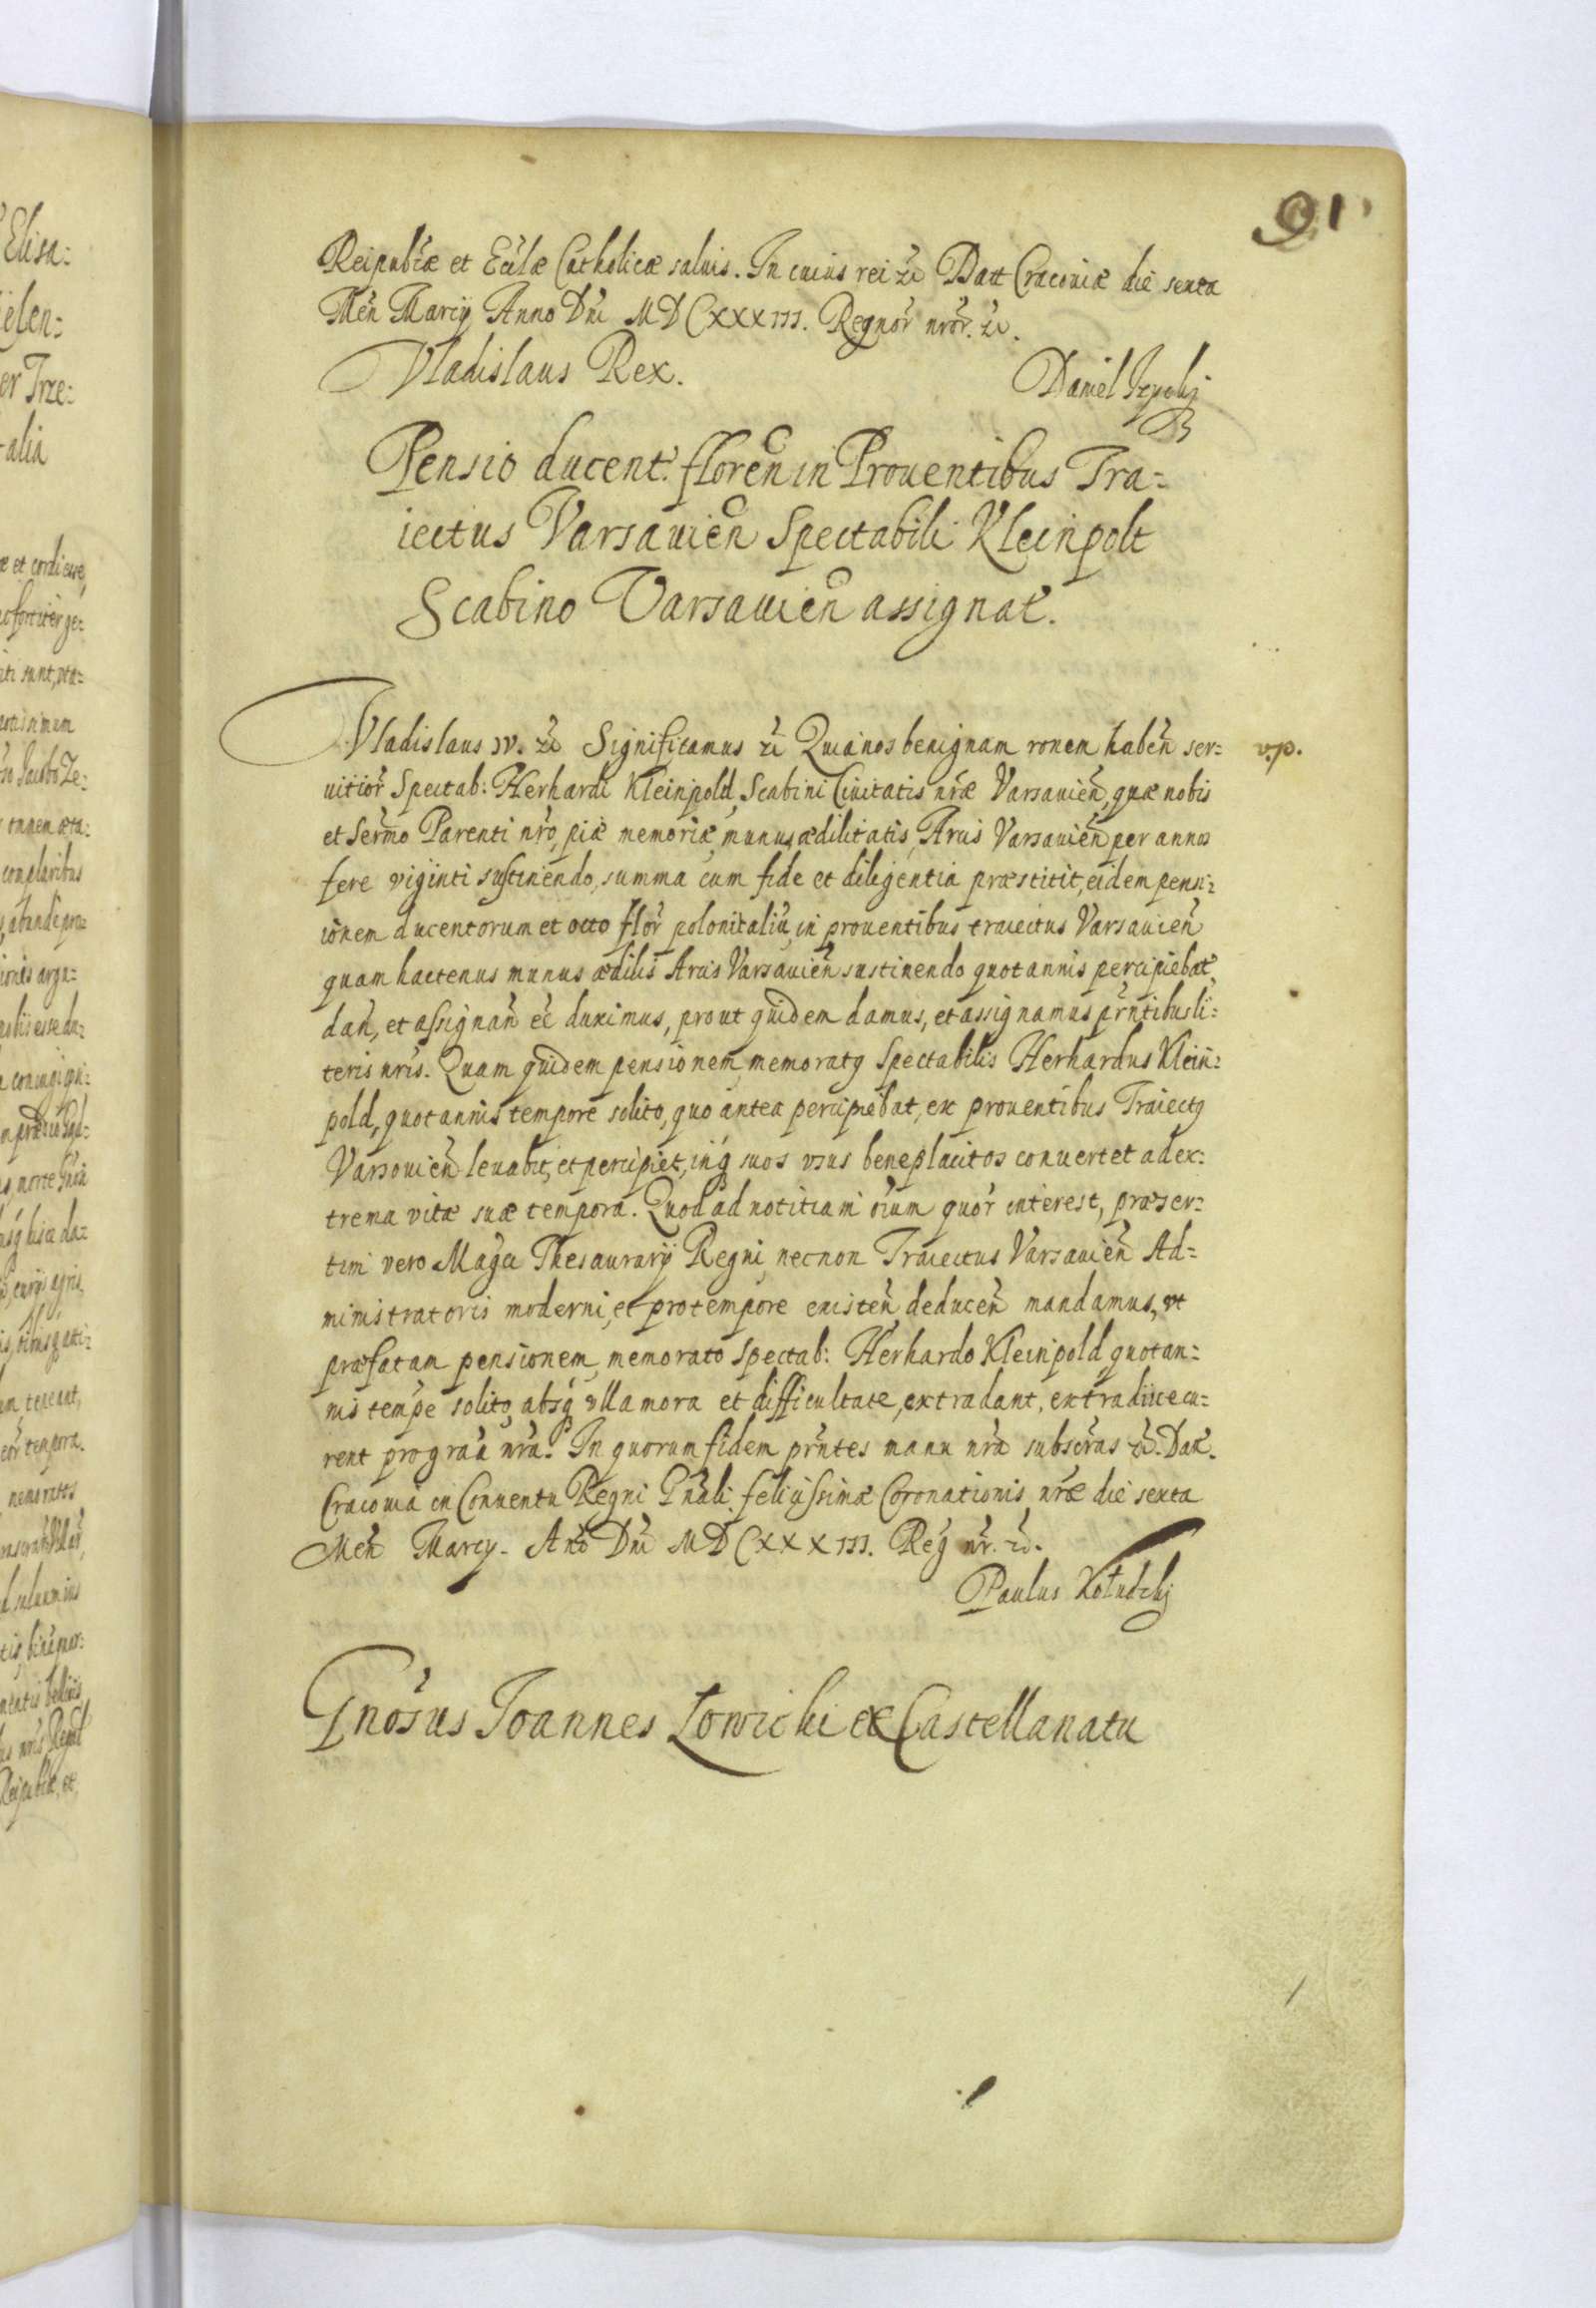 91
Reipub̃cæ et Eccl̃æ Catholicæ saluis. In cuius rei &c̃ Datt Cracoviæ die sexta
Meñ Marcij Anno Dñi MDCXXXIII. Regnor̃ nror̃. &c̃.
Vladislaus Rex.
Daniel
Pensio ducent. floreñ in Prouentibus Tra=
iectus Varsauieñ Spectabili Kleinpolt
Scabino Varsauieñ assignat̃.
Vladislaus IV. &c̃ Significamus &c̃ Quia nos benignam ronem habeñ ser=
v.p.
uitior̃ Spectab: Herhardi Kleinpold, Scabini Ciuitatis nr̃æ Varsauieñ, quæ nobis
et Ser̃mo Parenti nr̃o, piæ memoriæ, munus ædilitatis, Arcis Varsauieñ per annos
fere viginti sustinendo, summa cum fide et diligentia præstitit, eidem pensi=
ionem ducentorum et octo flor̃ polonicaliũ, in prouentibus traiectus Varsauieñ
quam hactenus munus ædilis Arcis Varsauieñ sustinendo quotannis percipiebat,
dañ, et assignañ eẽ duximus, prout quidem damus, et assignamus pr̃ntibus li=
teris nr̃is. Quam quidem pensionem, memoratq Spectabilis Herhardus Klein=
pold, quotannis tempore solito, quo antea percipiebat, ex prouentibus Traiectq
Varsouieñ leuabit, et percipiet, inq́ suos vsus beneplacitos conuertet ad ex=
trema vitæ suæ tempora. Quod ad notitiam oĩum quor̃ interest, præser=
tim vero Magci Thesaurarij Regni, necnon Traiectus Varsauieñ Ad=
ministratoris moderni, et protempore existeñ, deduceñ mandamus, vt
præfatam pensionem, memorato Spectab: Herhardo Kleinpold, quotan=
nis temp̃e solito, absq́ ulla mora et difficultate, extradant, extradiique cu=
rent pro gr̃a nr̃a. In quorum fidem pr̃ntes manu nr̃a subscr̃as &c̃. Dat̃.
Cracouiæ in Conuentu Regni Gñali feliciſsimæ Coronationis nr̃æ die sexta
Meñ Marcy. Añno Dñi MDCXXXIII. Reg̃ nr̃. &c̃.
Paulus Kołudzkj
Gnõsus Joannes Łowicki ex Castellanatu